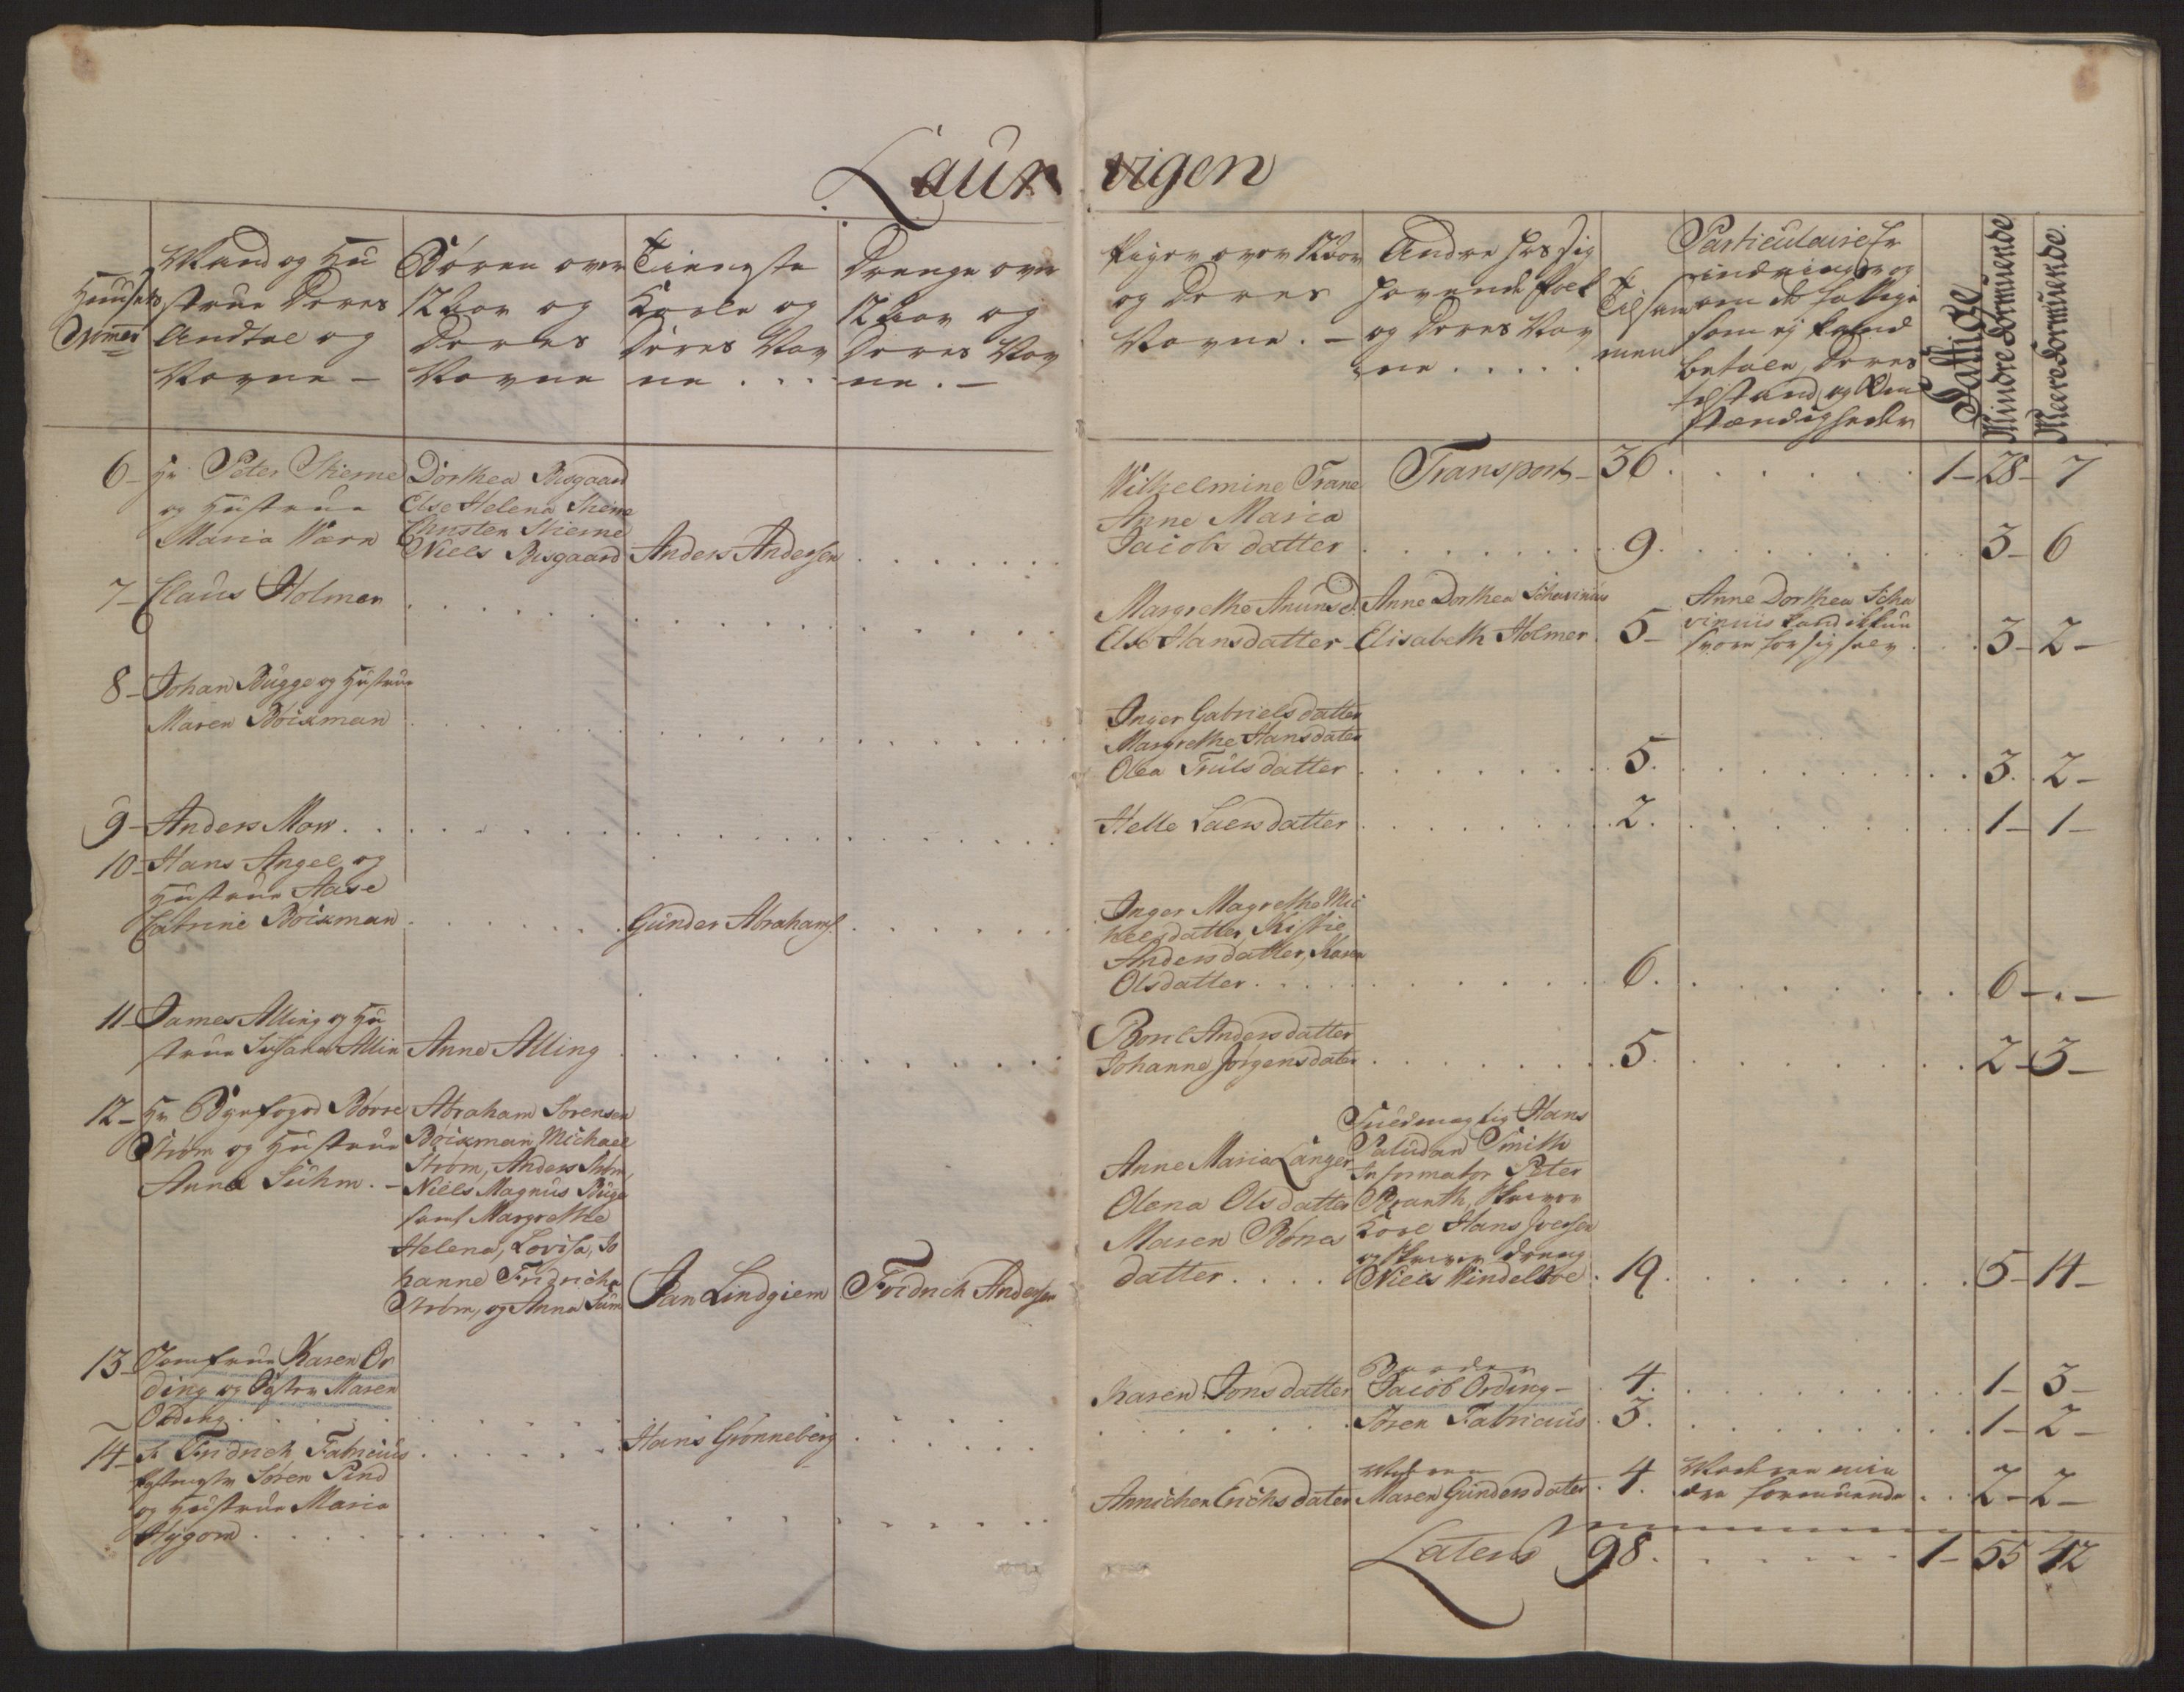 Laurvigen
Huusets
Nomer
Mand og Hu
strue Deres
Andtal og
Navne –
Børen over
12 Aar og
Deres
Navne
Tieneste
Karle og
Deres Nav
ne . . .
Drenge over
12 Aar og
Deres Nav
ne . –
Piger over 12 Aar
og Deres
Navne . –
Andre hos sig
havende folk
og Deres Nav
ne . . . . .
Tilsam
men
Particulaire Er
indringer og
om de fattige
som ej kand
betale, Deres
tilstand og Om
stændigheder
Fattige
Mindre formuende
Meere formuende.
6 – Hr. Peter Skierne
og Hustrue
Maria Wærn
Dorthea Bisgaard
Else Helena Skierne
Christen Skierne
Niels Bisgaard
Anders Andersen
Wilhelmine Trane
Anne Maria
Jacobs datter
Transport – 36 . 1 – 28 – 7
9. 3 – 6
7 – Claus Holmer
Margrethe Anunsd.
Else Hansdatter
Anne Dorthea Schavinius
Elisabeth Holmer
5 –
Anne Dorthea Scha
vinius kand ikkun
svare for sig selv
3 – 2 –
8 – Johan Bugge og Hustrue
Maren Böixman
Inger Gabriels datter
Margrethe Hansdater
Olea Truls datter
5. 3. 2 –
9 – Anders Mow.
Helle Laers datter
2. 1 – 1 –
10 – Hans Angel og
Hustrue Aase
Catrine Böixman
Gunder Abrahams.
Inger Magrethe Mic
kelsdatter, Kistie
Andersdatter, Karen
Olsdatter
6. 6 – . –
11 – James Alling og Hu
strue Sussana Allin
Anne Alling
Boril Andersdatter
Johanne Jørgensdater
5. 2 – 3 –
12 – Hr. Byefoged Børre
Strøm og Hustrue
Anna Suhm. –
Abraham Sørensen
Böixman, Michael
Strøm, Anders Strøm,
Niels Magnus Buge
samt Margrethe
Helena, Lovisa, Jo
hanne Fridricha
Strøm, og Anna Sum
Jan Lindgiem
Fridrich Andersen
Anne Maria Langer
Olena Olsdatter
Maren Børres
datter . . . .
Fuldmægtig Hans
Paludan Smith
Informator Peter
Branth, Skriver
Karl Hans Iversen
og Skriver dreng
Niels Windeltoe
19. 5 – 14 –
13 – Jomfrue Karen Or
ding og Søster Maren
Ording
Karen Jonsdatter
Broder
Jacob Ording –
4. 1 – 3 –
14 – Sr. Fridrich Fabricius
Hans Grønneberg
Søren Fabriciuis
3. 1 – 2 –
Søren Pind
og Hustrue Maria
Hygom
Annichen Erichsdater
Maren Gundersdater
4.
Moderen min
dre formuende
2 – 2 –
Lateris 98. 1 – 55 42